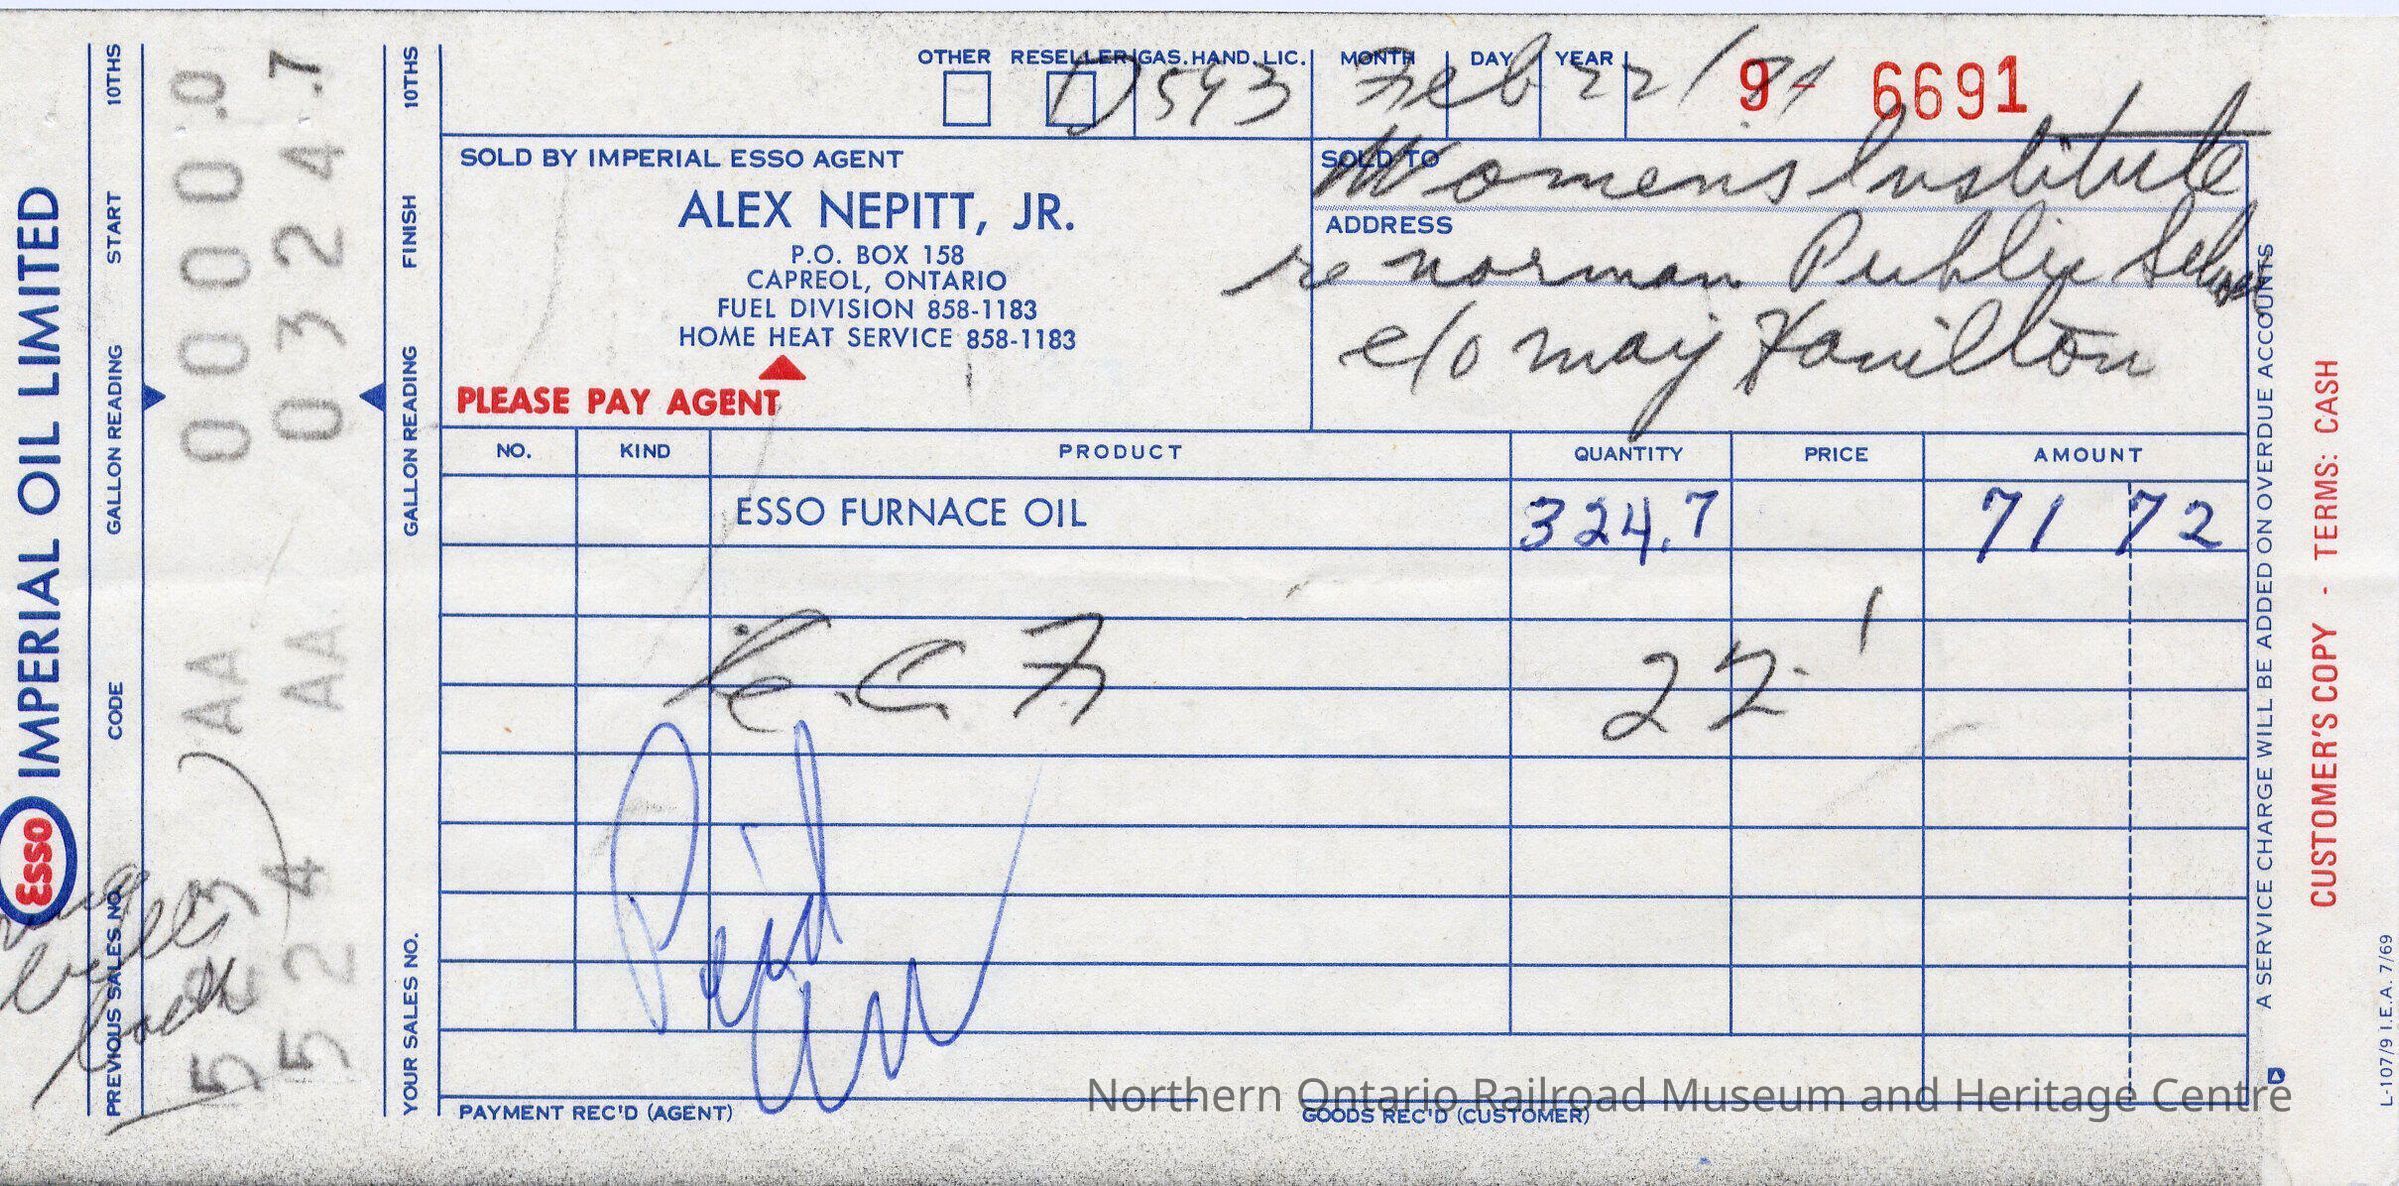 OTHER RESELLER GAS. HAND. LIC. MONTH DAY YEAR
D 543 Feb 22/ 9 6691
SOLD BY IMPERIAL ESSO AGENT
ALEX NEPITT, JR.
P.O. BOX 158
CAPREOL, ONTARIO
FUEL DIVISION 858-1183
HOME HEAT SERVICE 858-1183
PLEASE PAY AGENT
SOLD TO
Womens Institute
ADDRESS
re norman Public School
c/o may Hamilton
NO. KIND PRODUCT QUANTITY PRICE AMOUNT
ESSO FURNACE OIL 324.7 71 72
22 1
Paid
PAYMENT REC'D (AGENT) GOODS REC'D (CUSTOMER)
Northern Ontario Railroad Museum and Heritage Centre
Esso IMPERIAL OIL LIMITED
PREVIOUS SALES NO. CODE GALLON READING START 10THS
523 AA 0000.0
524 AA 0324.7
YOUR SALES NO. GALLON READING FINISH 10THS
A SERVICE CHARGE WILL BE ADDED ON OVERDUE ACCOUNTS
CUSTOMER'S COPY - TERMS: CASH
L-107/9 I.E.A. 7/69